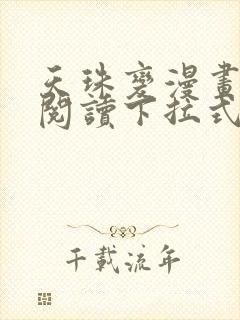 天珠變漫畫
閱讀下拉式
千載流年